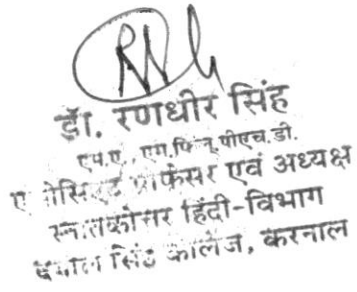 डॉ. रणधीर सिंह
एम.ए., एम.फिल्, पीएच.डी.
एसोसिएट प्रोफेसर एवं अध्यक्ष
स्नातकोत्तर हिंदी-विभाग
दयाल सिंह कालेज, करनाल